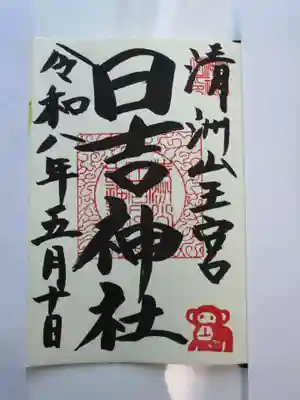 清洲山王宮
日吉神社
令和八年五月十日